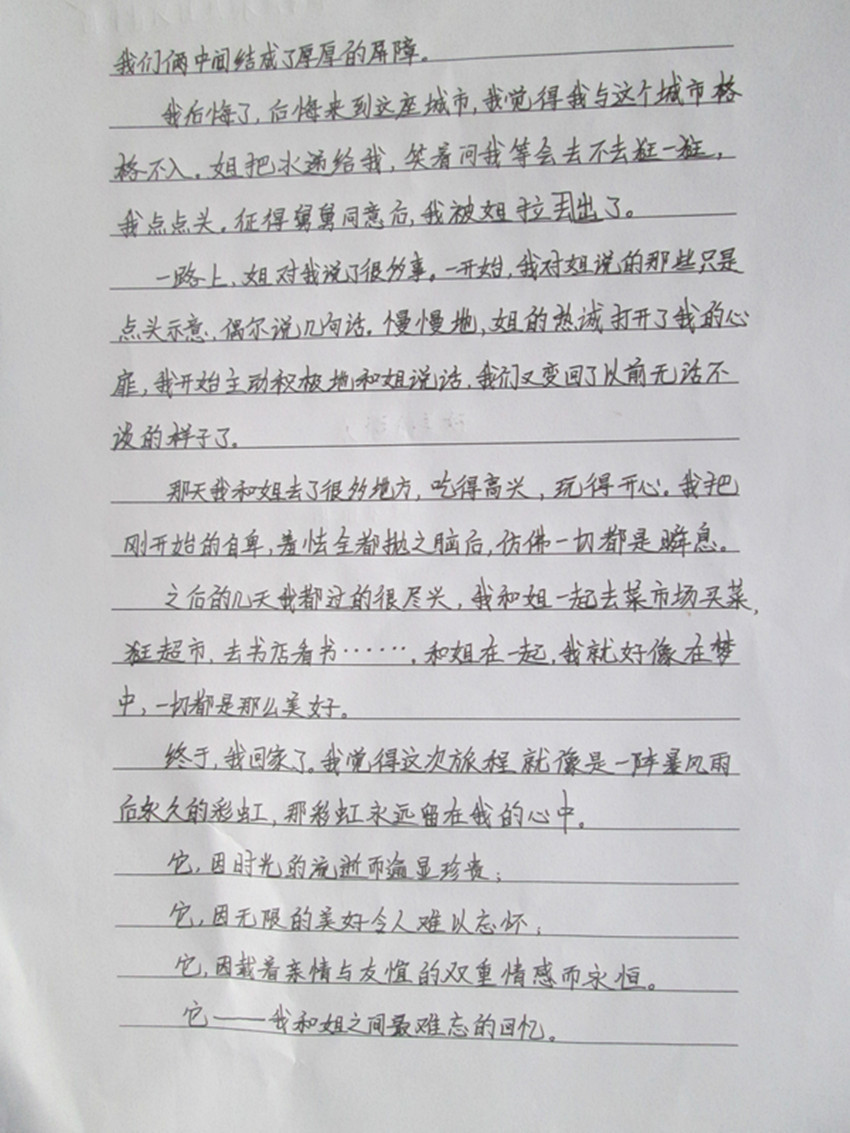 我们俩中间结成了厚厚的屏障。
我后悔了，后悔来到这座城市，我觉得我与这个城市格
格不入。姐把水递给我，笑着问我等会去不去逛一逛，
我点点头。征得舅舅同意后，我被姐拉出了。
一路上，姐对我说了很多事。一开始，我对姐说的那些只是
点头示意，偶尔说几句话。慢慢地，姐的热诚打开了我的心
扉，我开始主动积极地和姐说话，我们又变回了以前无话不
谈的样子了。
那天我和姐去了很多地方，吃得高兴，玩得开心。我把
刚开始的自卑，羞怯全都抛之脑后，仿佛一切都是瞬息。
之后的几天我都过的很尽兴，我和姐一起去菜市场买菜，
逛超市，去书店看书……，和姐在一起，我就好像在梦
中，一切都是那么美好。
终于，我回家了。我觉得这次旅程就像是一阵暴风雨
后永久的彩虹，那彩虹永远留在我的心中。
它，因时光的流逝而逾显珍贵；
它，因无限的美好令人难以忘怀；
它，因载着亲情与友谊的双重情感而永恒。
它——我和姐之间最难忘的回忆。